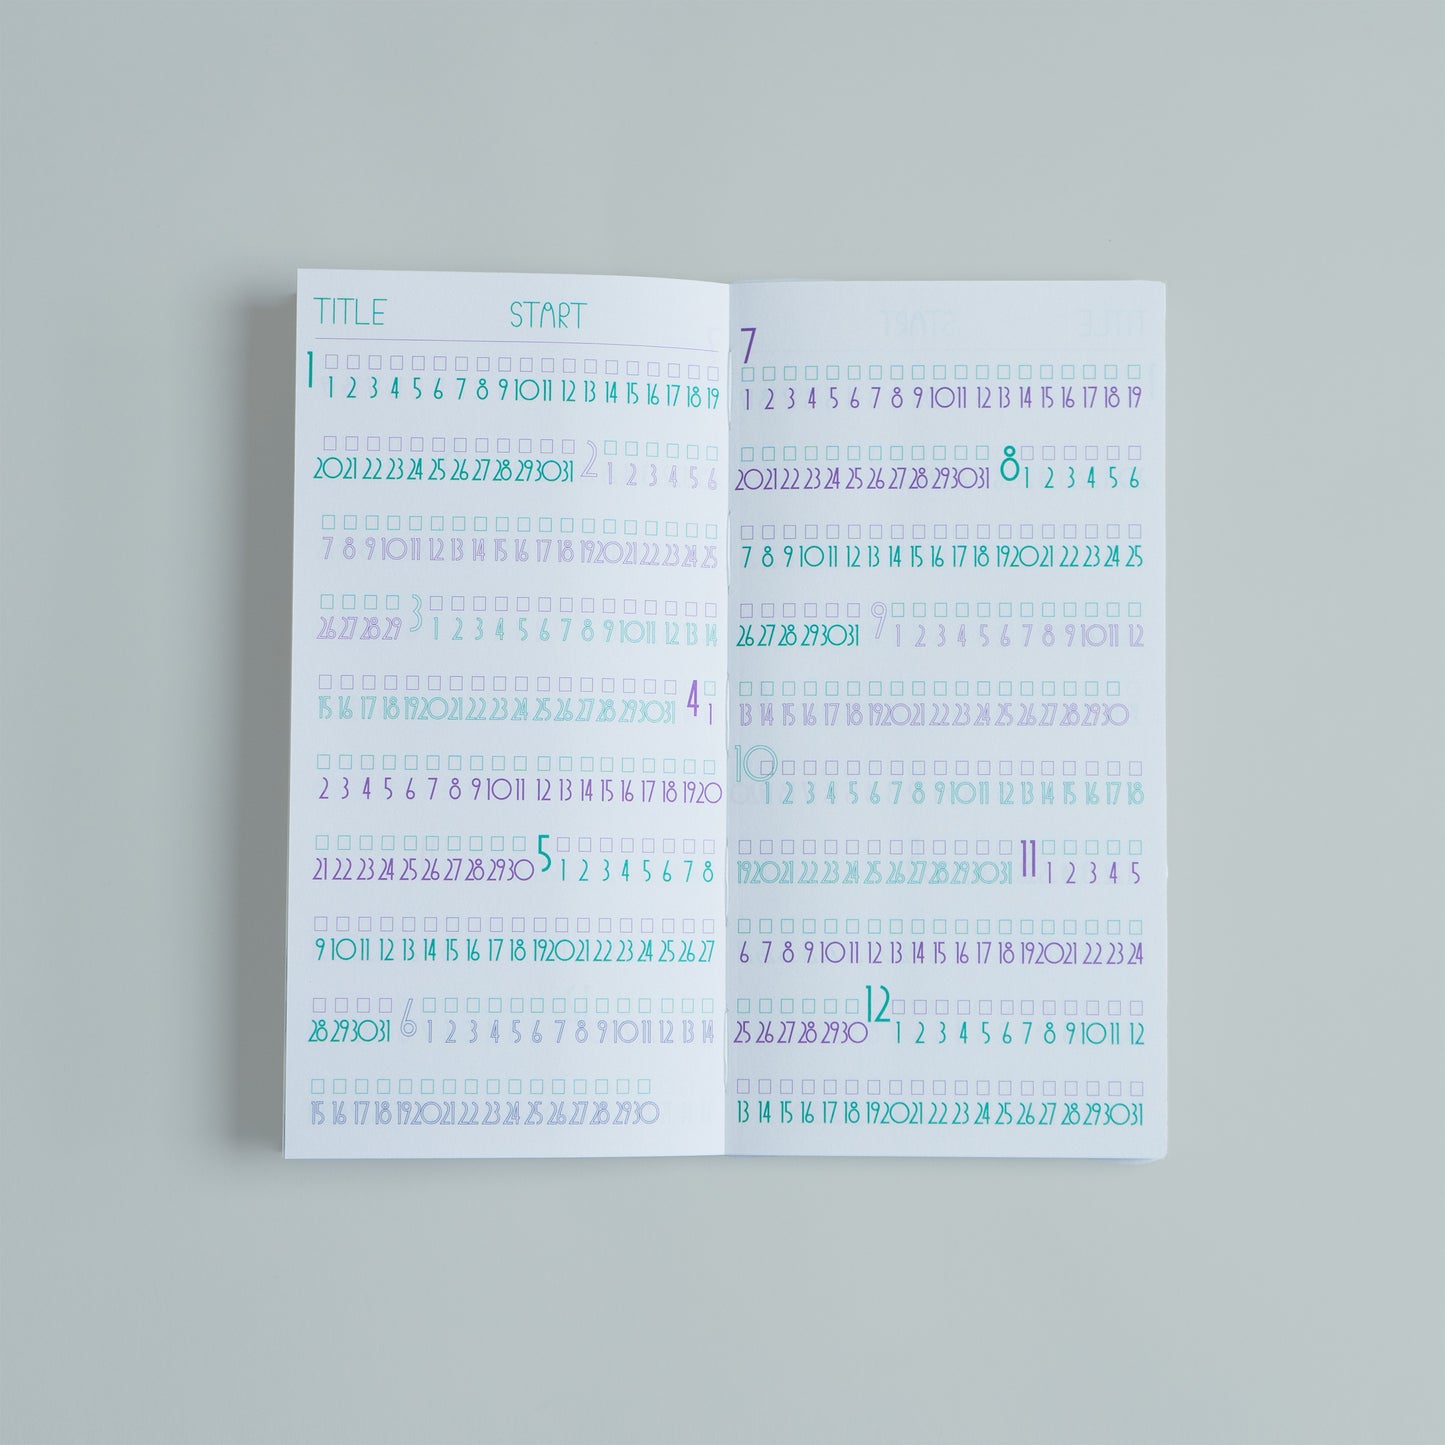 TITLE START
1 1 2 3 4 5 6 7 8 9 10 11 12 13 14 15 16 17 18 19
20 21 22 23 24 25 26 27 28 29 30 31 2 1 2 3 4 5 6
7 8 9 10 11 12 13 14 15 16 17 18 19 20 21 22 23 24 25
26 27 28 29 3 1 2 3 4 5 6 7 8 9 10 11 12 13 14
15 16 17 18 19 20 21 22 23 24 25 26 27 28 29 30 31 4 1
2 3 4 5 6 7 8 9 10 11 12 13 14 15 16 17 18 19 20
21 22 23 24 25 26 27 28 29 30 5 1 2 3 4 5 6 7 8
9 10 11 12 13 14 15 16 17 18 19 20 21 22 23 24 25 26 27
28 29 30 31 6 1 2 3 4 5 6 7 8 9 10 11 12 13 14
15 16 17 18 19 20 21 22 23 24 25 26 27 28 29 30
7
1 2 3 4 5 6 7 8 9 10 11 12 13 14 15 16 17 18 19
20 21 22 23 24 25 26 27 28 29 30 31 8 1 2 3 4 5 6
7 8 9 10 11 12 13 14 15 16 17 18 19 20 21 22 23 24 25
26 27 28 29 30 31 9 1 2 3 4 5 6 7 8 9 10 11 12
13 14 15 16 17 18 19 20 21 22 23 24 25 26 27 28 29 30
10 1 2 3 4 5 6 7 8 9 10 11 12 13 14 15 16 17 18
19 20 21 22 23 24 25 26 27 28 29 30 31 11 1 2 3 4 5
6 7 8 9 10 11 12 13 14 15 16 17 18 19 20 21 22 23 24
25 26 27 28 29 30 12 1 2 3 4 5 6 7 8 9 10 11 12
13 14 15 16 17 18 19 20 21 22 23 24 25 26 27 28 29 30 31